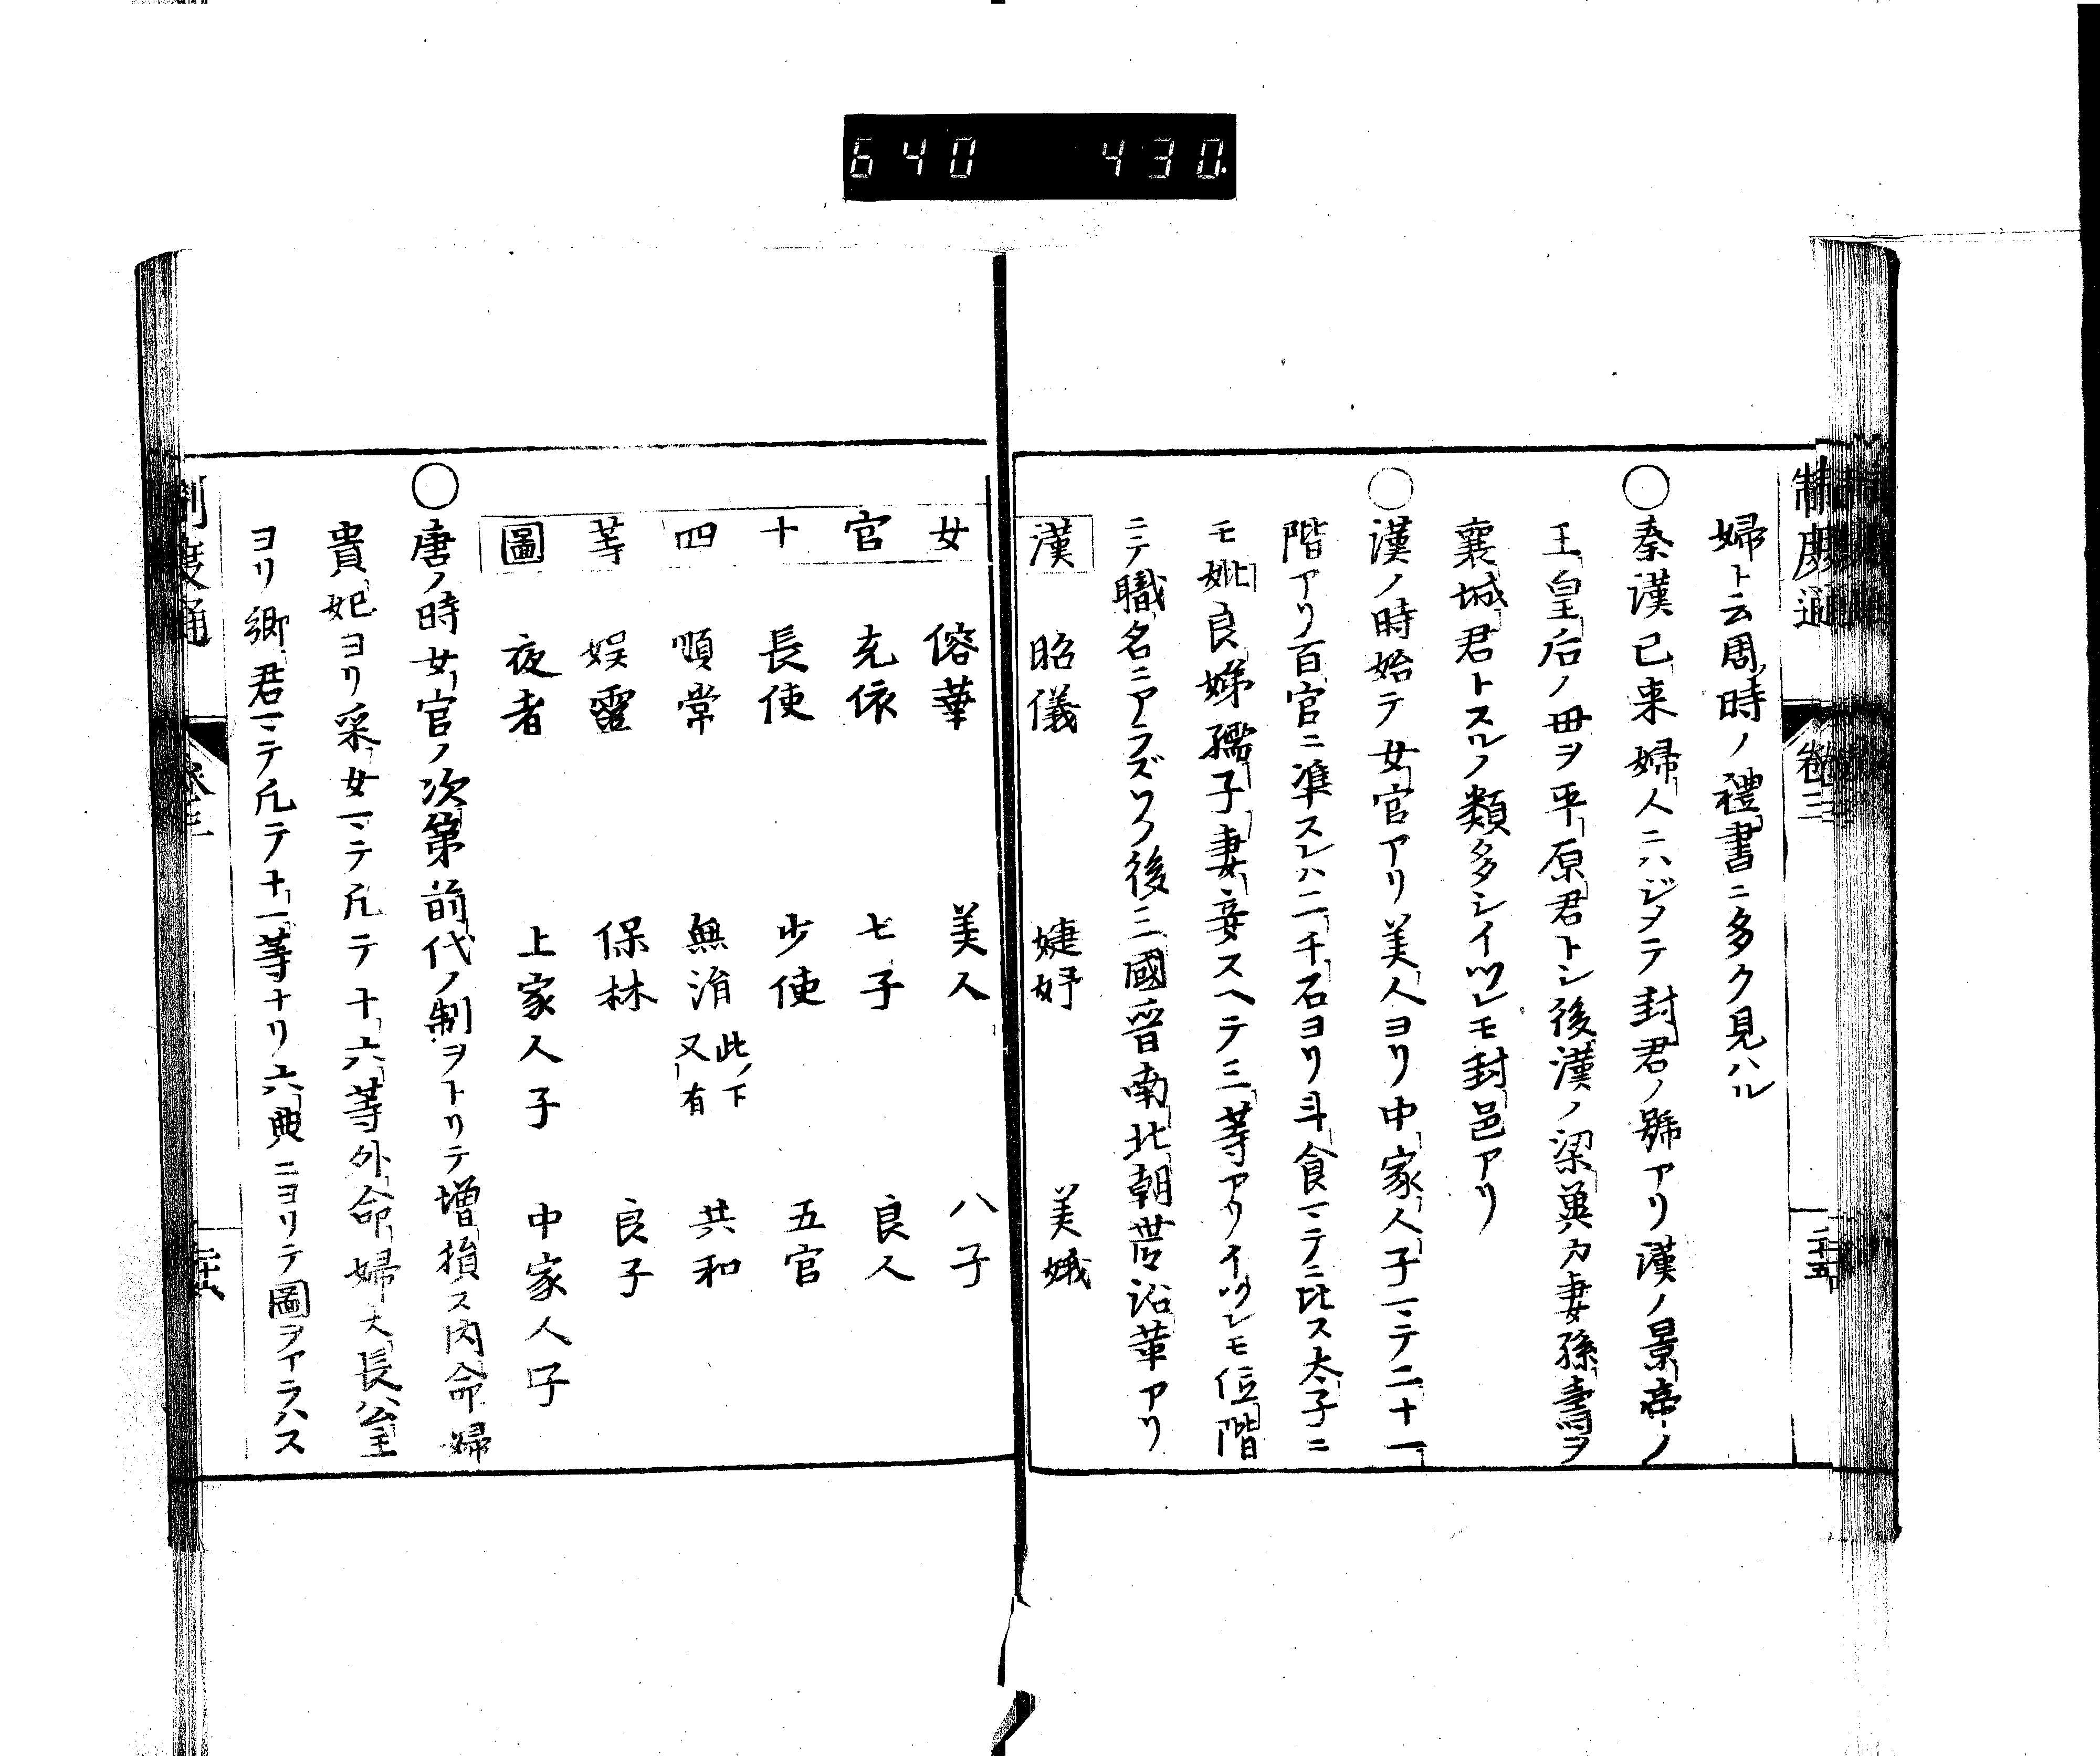 640 430.
制度通 卷三 二十五
婦ト云周ノ時ノ禮書ニ多ク見ハル
○秦漢已来婦人ニハジメテ封君ノ號アリ漢ノ景帝ノ
王皇后ノ母ヲ平原君トシ後漢ノ梁冀カ妻孫壽ヲ
襄城君トスルノ類多シイツレモ封邑アリ
○漢ノ時始テ女官アリ美人ヨリ中家人子マテ二十一
階アリ百官ニ準スレハ二千石ヨリ斗食マテニ比ス太子ニ
モ妣良娣孺子妻妾スヘテ三等アリイツレモ位階
ニテ職名ニアラズソノ後三國晋南北朝世々沿革アリ
漢 昭儀 婕妤 美娥
女 傛華 美人 八子
官 充依 七子 良人
十 長使 少使 五官
四 順常 無涓 此ノ下又有 共和
等 娛靈 保林 良子
圖 夜者 上家人子 中家人子
○唐ノ時女官ノ次第前代ノ制ヲトリテ増損ス内命婦
貴妃ヨリ采女マテ凡テ十六等外命婦大長公主
ヨリ郷君マテ凡テ十一等ナリ六典ニヨリテ圖ヲアラハス
制度通 卷三 二十六